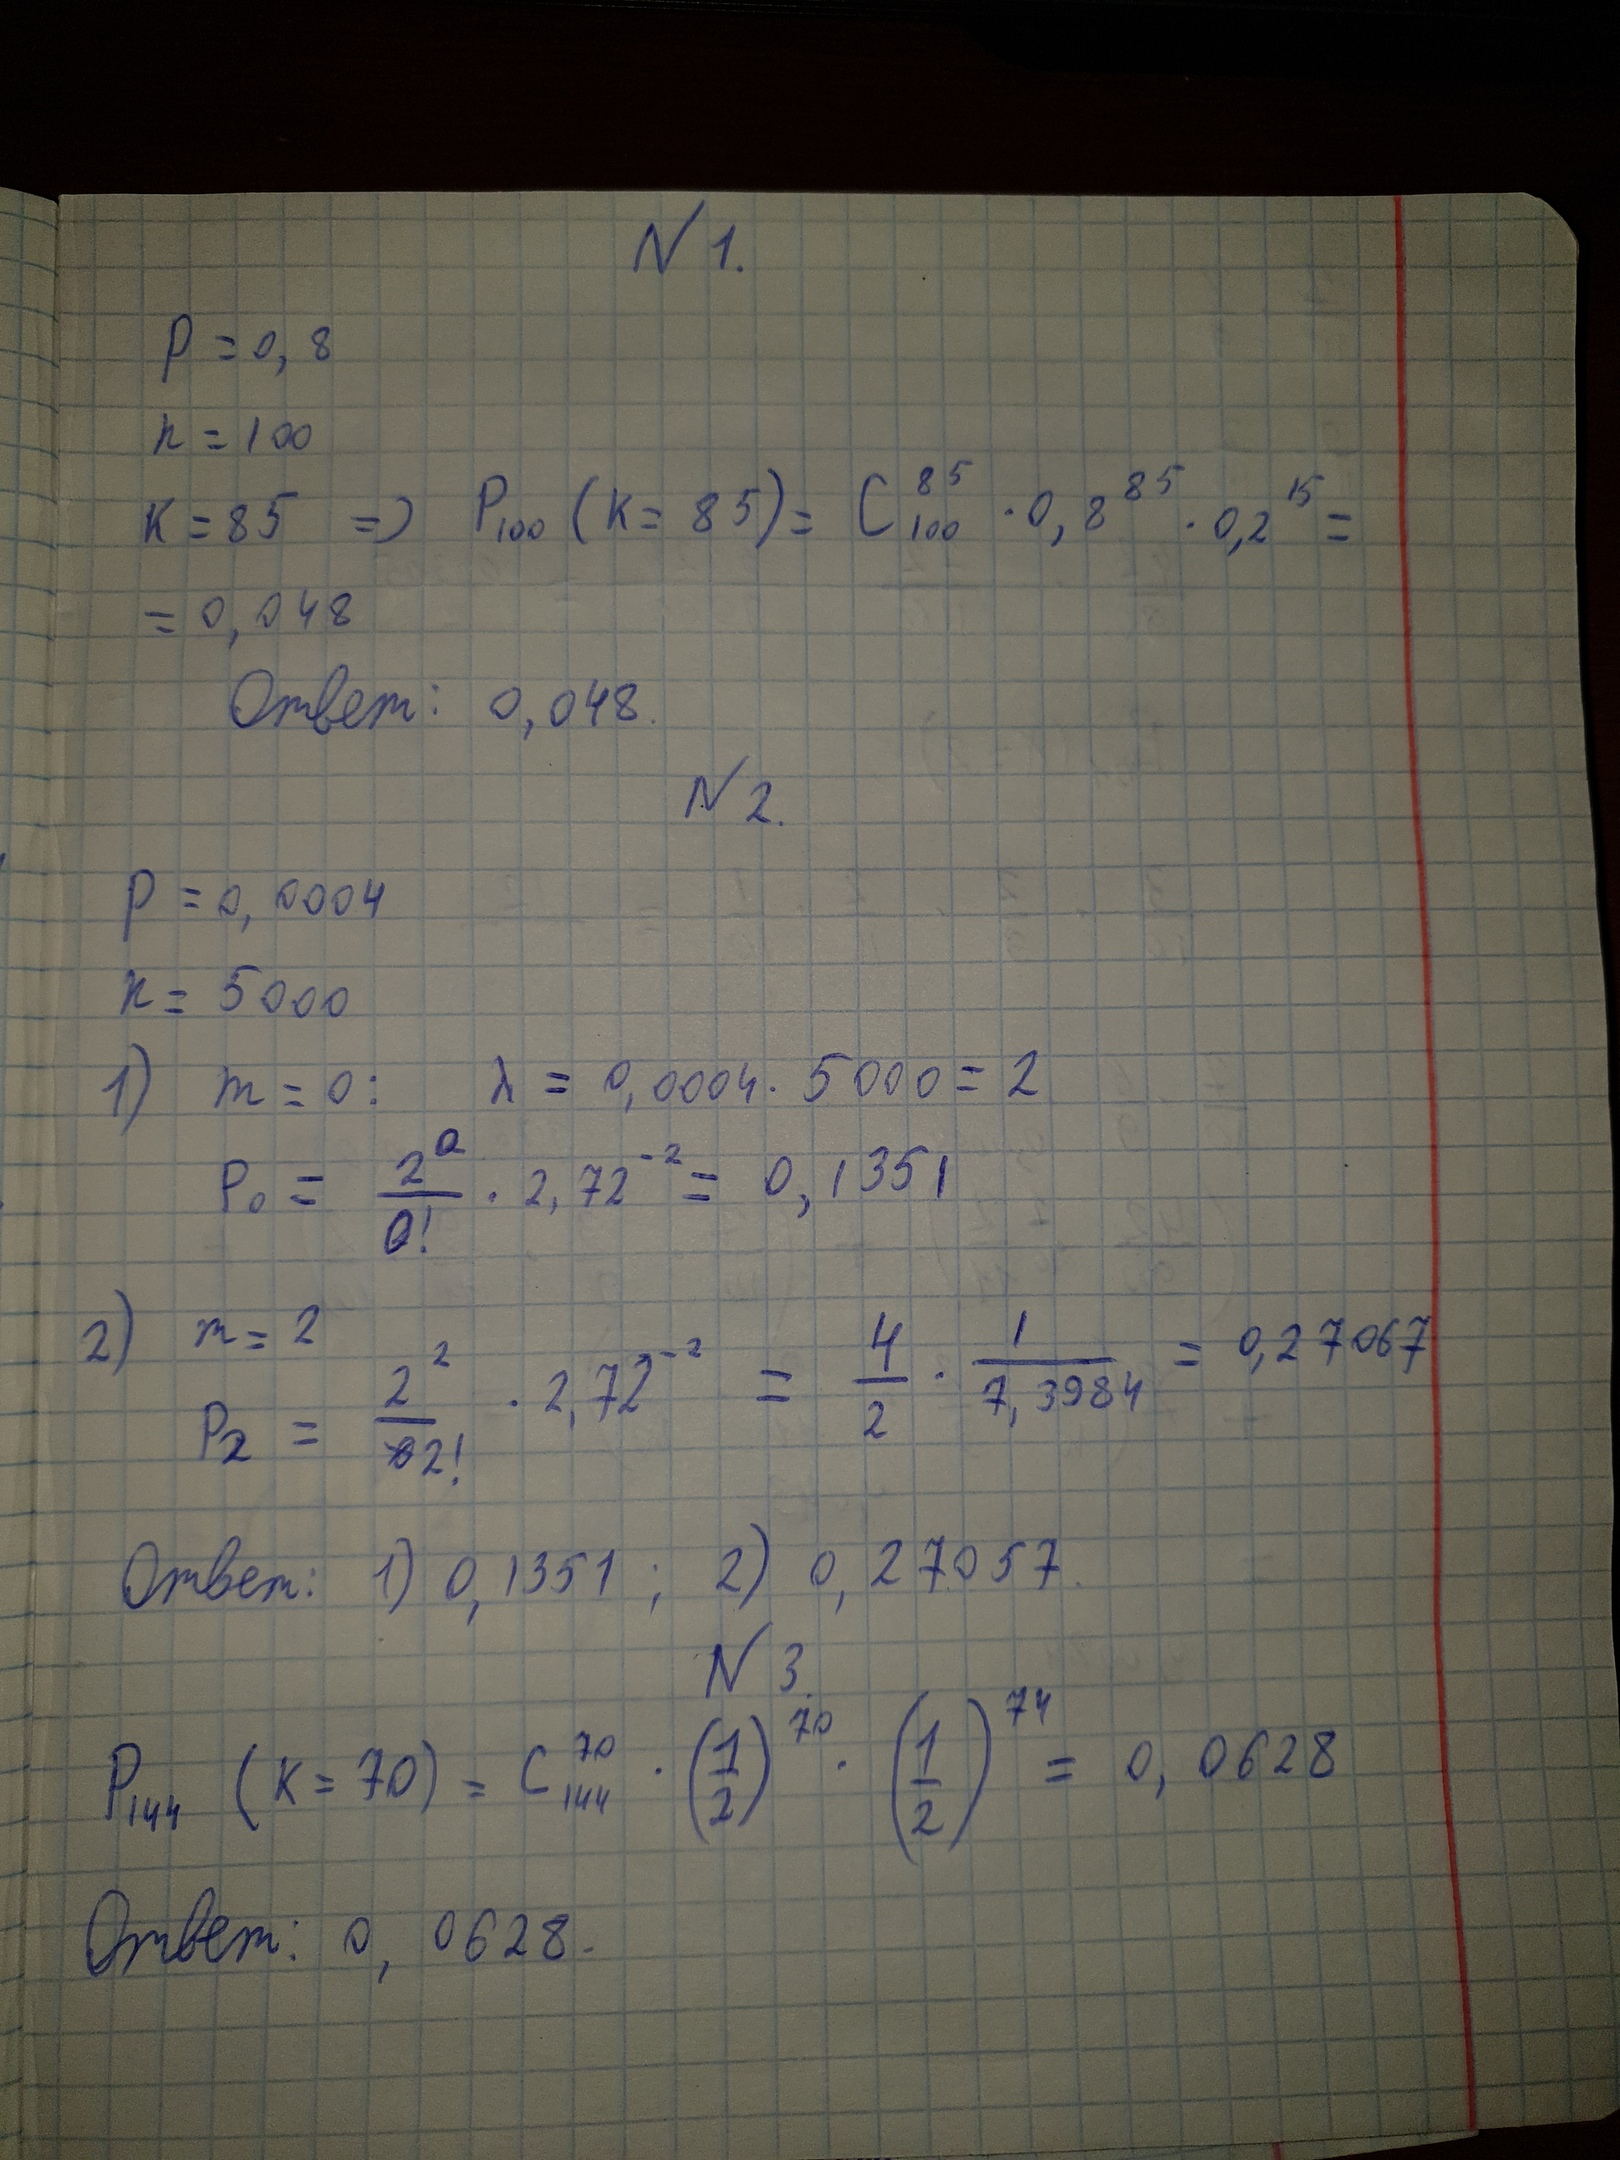 N 1.
P = 0,8
n = 100
K = 85 => P₁₀₀ (K = 85) = C₁₀₀⁸⁵ · 0,8⁸⁵ · 0,2¹⁵ =
= 0,048
Ответ: 0,048.
N 2.
P = 0,0004
n = 5000
1) m = 0: λ = 0,0004 · 5000 = 2
P₀ = 2⁰/0! · 2,72⁻² = 0,1351
2) m = 2
P₂ = 2²/2! · 2,72⁻² = 4/2 · 1/7,3984 = 0,27067
Ответ: 1) 0,1351; 2) 0,27057.
N 3.
P₁₄₄ (K = 70) = C₁₄₄⁷⁰ · (1/2)⁷⁰ · (1/2)⁷⁴ = 0,0628
Ответ: 0,0628.